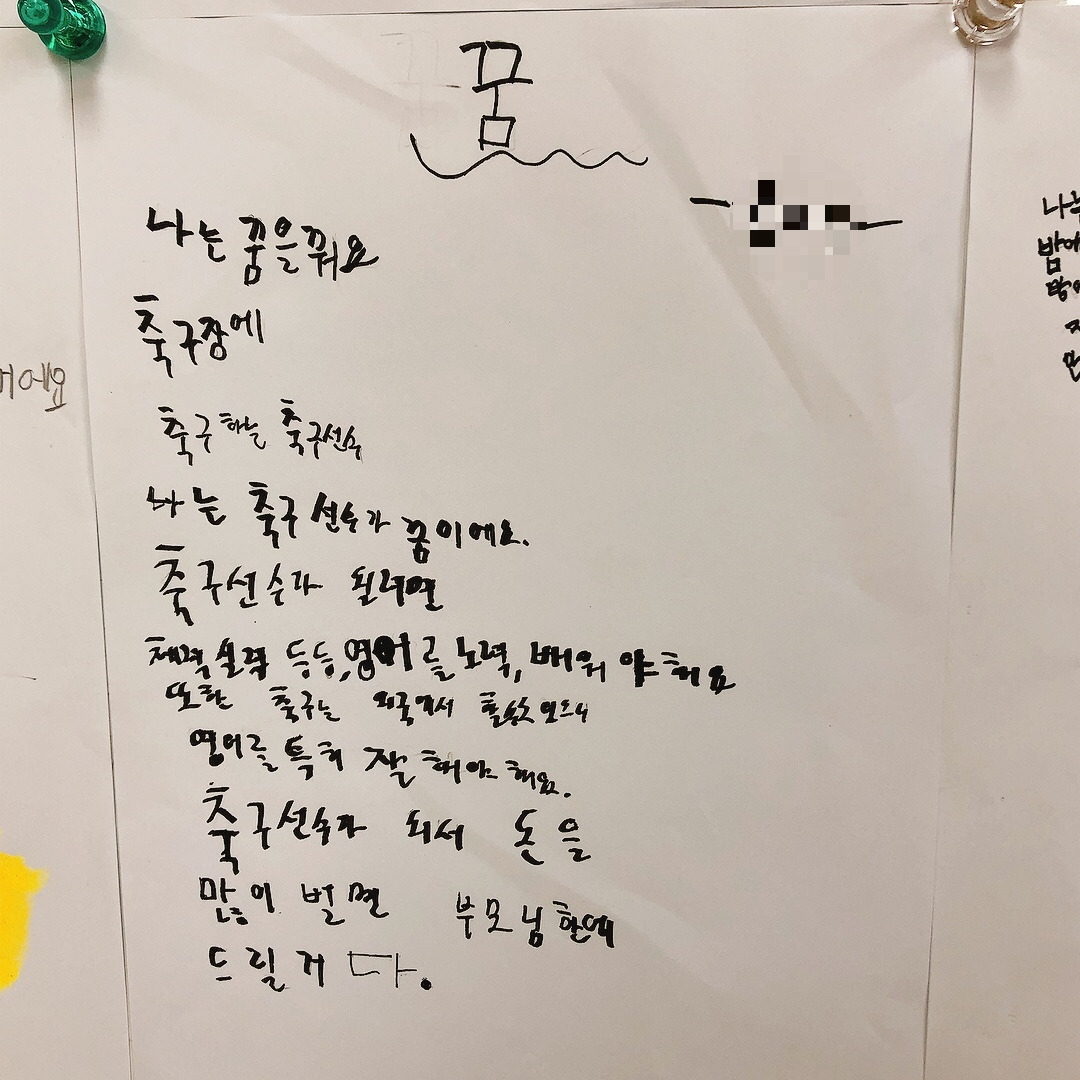 꿈
나는 꿈을 꿔요
축구장에
축구하는 축구선수
나는 축구 선수가 꿈이에요.
축구선수가 될려면
체력, 실력 등등, 영어를 노력, 배워 야 해요
또한 축구는 외국에서 모드니
영어를 특히 잘 해야 해요.
축구선수가 되서 돈을
많이 벌면 부모님한에
드릴거다.
어에요
나는